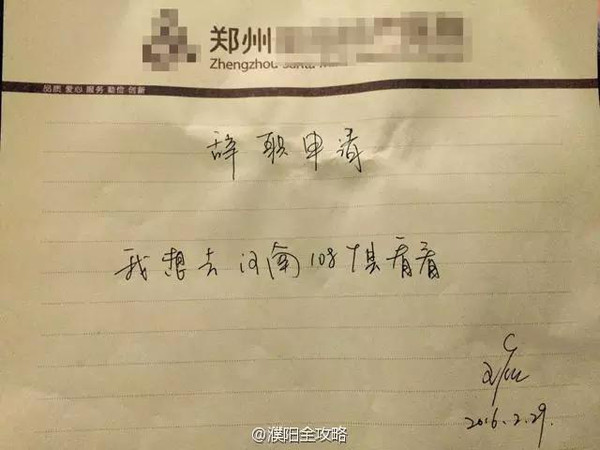 郑州
Zhengzhou
品质 爱心 服务 勤俭 创新
辞职申请
我想去河南108县看看
2016.2.29.
@濮阳全攻略